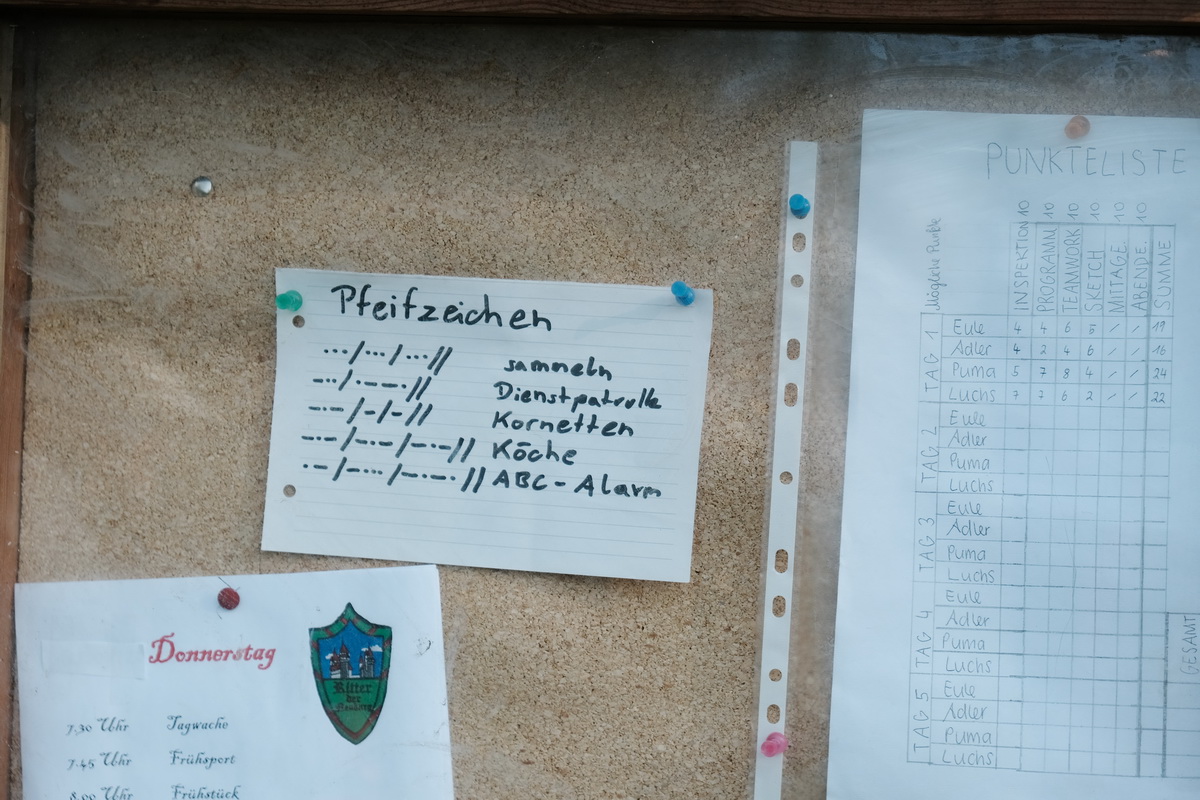 Pfeifzeichen
···/···/···// sammeln
-··/·--·// Dienstpatrulle
-·-/-/-// Kornetten
-·-/-·-/-·-// Köche
·-/-···/-·-·// ABC-Alarm
Donnerstag
Ritter
der
7.30 Uhr Tagwache
7.45 Uhr Frühsport
8.00 Uhr Frühstück
PUNKTELISTE
Mögliche Punkte 10 10 10 10 10 10
INSPEKTION PROGRAMM TEAMWORK SKETCH MITTAGE. ABENDE. SUMME
TAG 1
Eule 4 4 6 5 / / 19
Adler 4 2 4 6 / / 16
Puma 5 7 8 4 / / 24
Luchs 7 7 6 2 / / 22
TAG 2
Eule
Adler
Puma
Luchs
TAG 3
Eule
Adler
Puma
Luchs
TAG 4
Eule
Adler
Puma
Luchs
TAG 5
Eule
Adler
Puma
Luchs
GESAMT